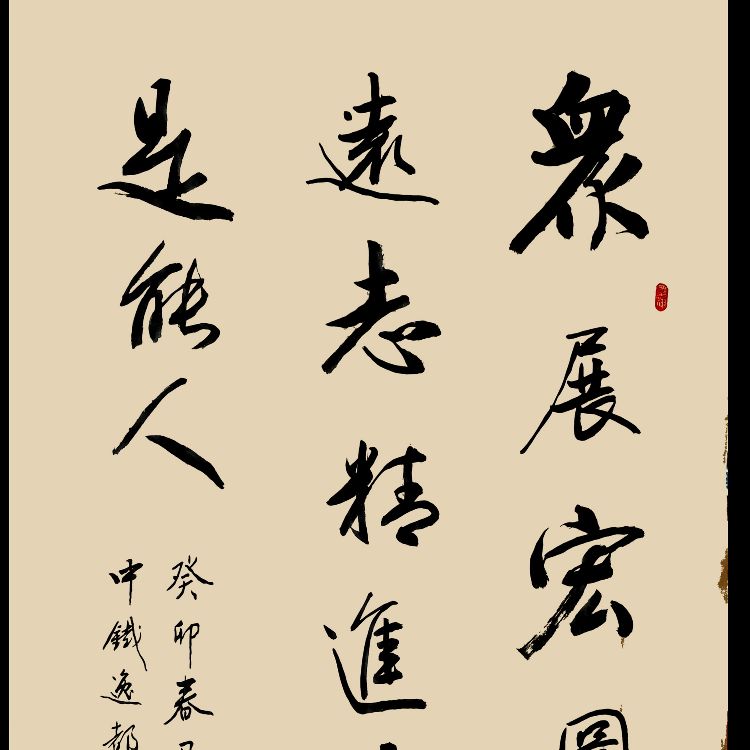 衆展宏圖
遠志精進
是能人
癸卯春
中鐵逸都